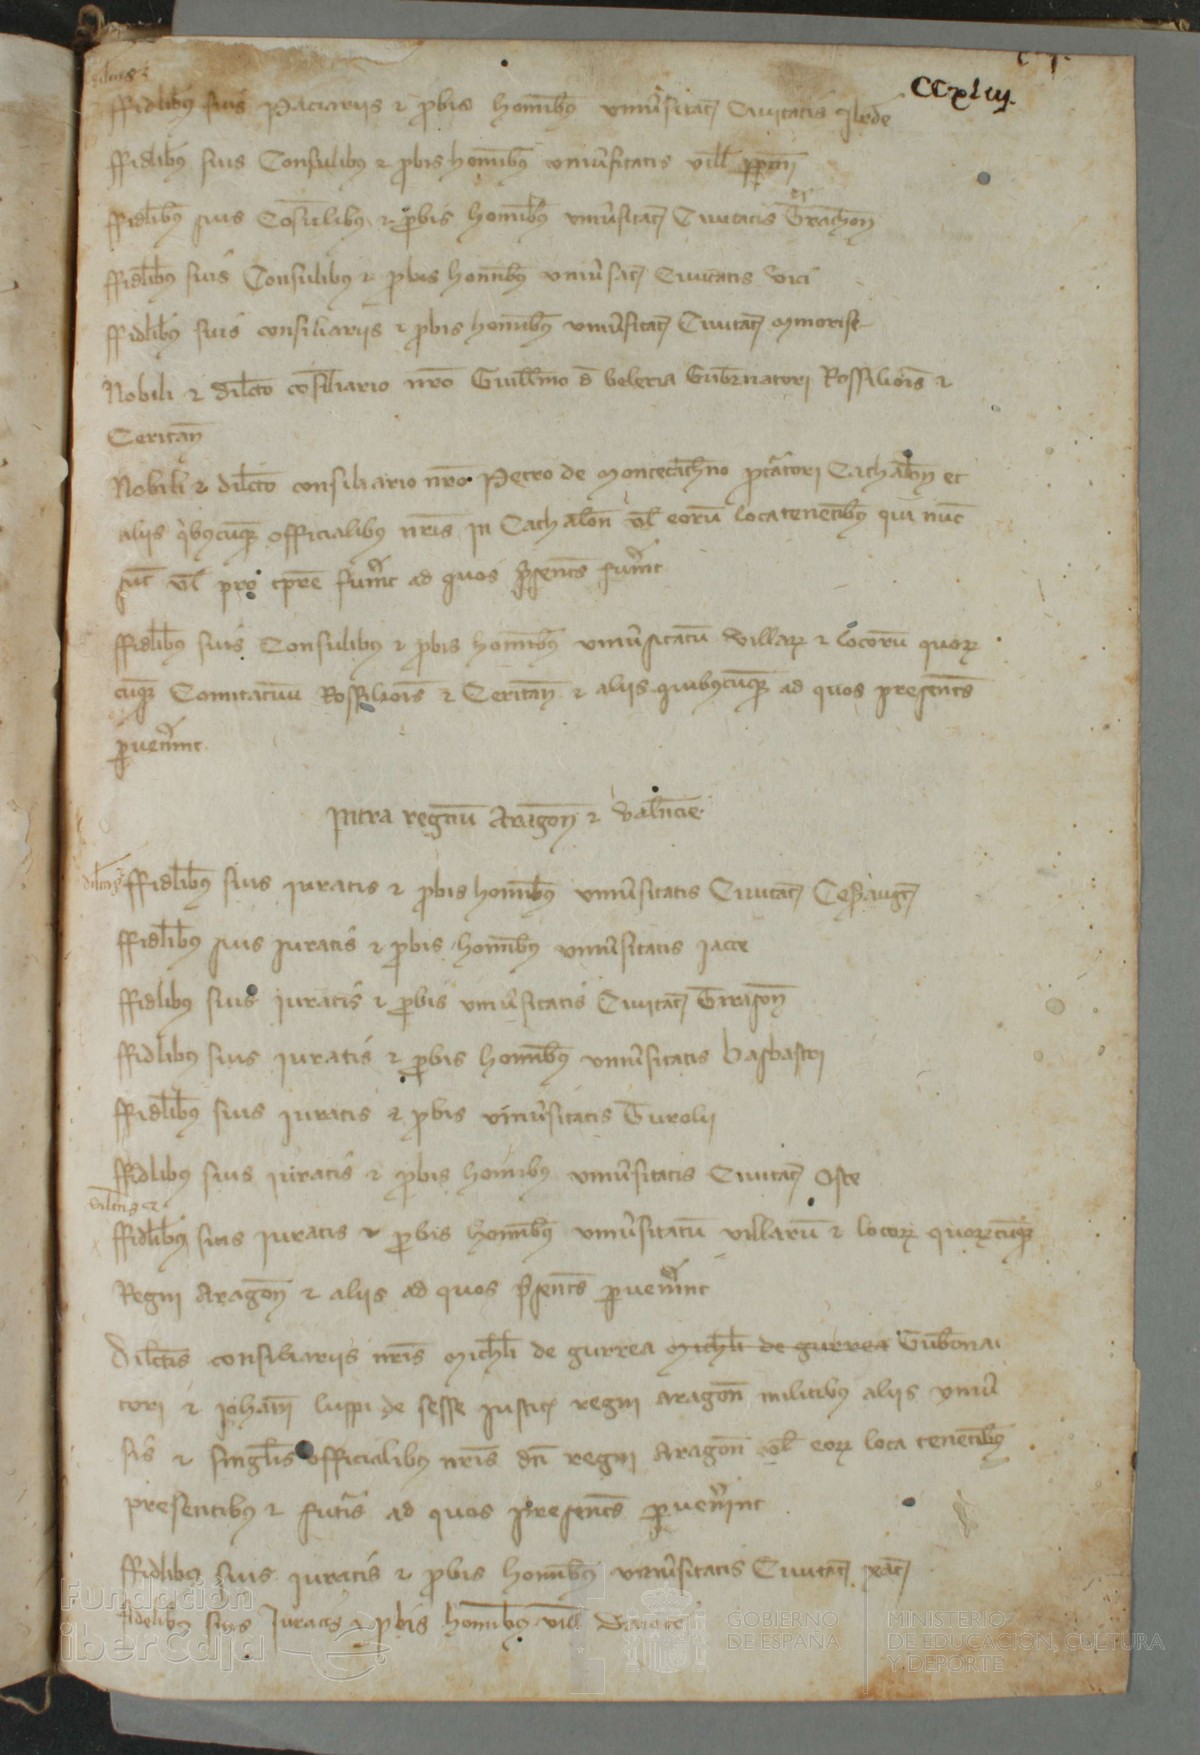 CCxliij.
dilectis et
ffidelibus suis Paciariis et probis hominibus universitatis Civitatis Ilerde
ffidelibus suis Consulibus et probis hominibus universitatis ville
ffidelibus suis Consulibus et probis hominibus universitatis Civitatis
ffidelibus suis Consulibus et probis hominibus universitatis Civitatis Vici
ffidelibus suis consiliariis et probis hominibus universitatis Civitatis Minorise
Nobili et dilecto consiliario nostro Guillelmo de beleria Gubernatori Rossilionis et
Ceritanie
Nobili et dilecto consiliario nostro Petro de Montecatheno procuratori Cathalonie et
aliis quibuscumque officialibus nostris in Cathalonia vel eorum locatenentibus qui nunc
sunt vel pro tempore fuerint ad quos presentes
ffidelibus suis Consulibus et probis hominibus universitatum villarum et locorum quorum
cumque Comitatuum Rossilionis et Ceritanie et aliis quibuscumque ad quos presentes
pervenerint
Intra regnum Aragonum et Valencie
dilectis et
ffidelibus suis iuratis et probis hominibus universitatis Civitatis Cesarauguste
ffidelibus suis iuratis et probis hominibus universitatis Jacce
ffidelibus suis iuratis et probis universitatis Civitatis Tirasone
ffidelibus suis iuratis et probis hominibus universitatis Barbastri
ffidelibus suis iuratis et probis universitatis Turolii
ffidelibus suis iuratis et probis hominibus universitatis Civitatis Osce
dilectis et
ffidelibus suis iuratis et probis hominibus universitatum villarum et locorum quorumcumque
Regni Aragonum et aliis ad quos presentes pervenerint
Dilectis consiliariis nostris Michaeli de gurrea Michaeli de gurrea Guberna
tori et Johanni luppi de sesse Justicie regni Aragonum militibus aliis univer
sis et singulis officialibus nostris dicti regni Aragonum vel eorum loca tenentibus
presentibus et futuris ad quos presentes pervenerint
ffidelibus suis iuratis et probis hominibus universitatis Civitatis
fidelibus suis Juratis et probis hominibus ville Daroce
Fundación
iberCaja
GOBIERNO
DE ESPAÑA
MINISTERIO
DE EDUCACIÓN, CULTURA
Y DEPORTE